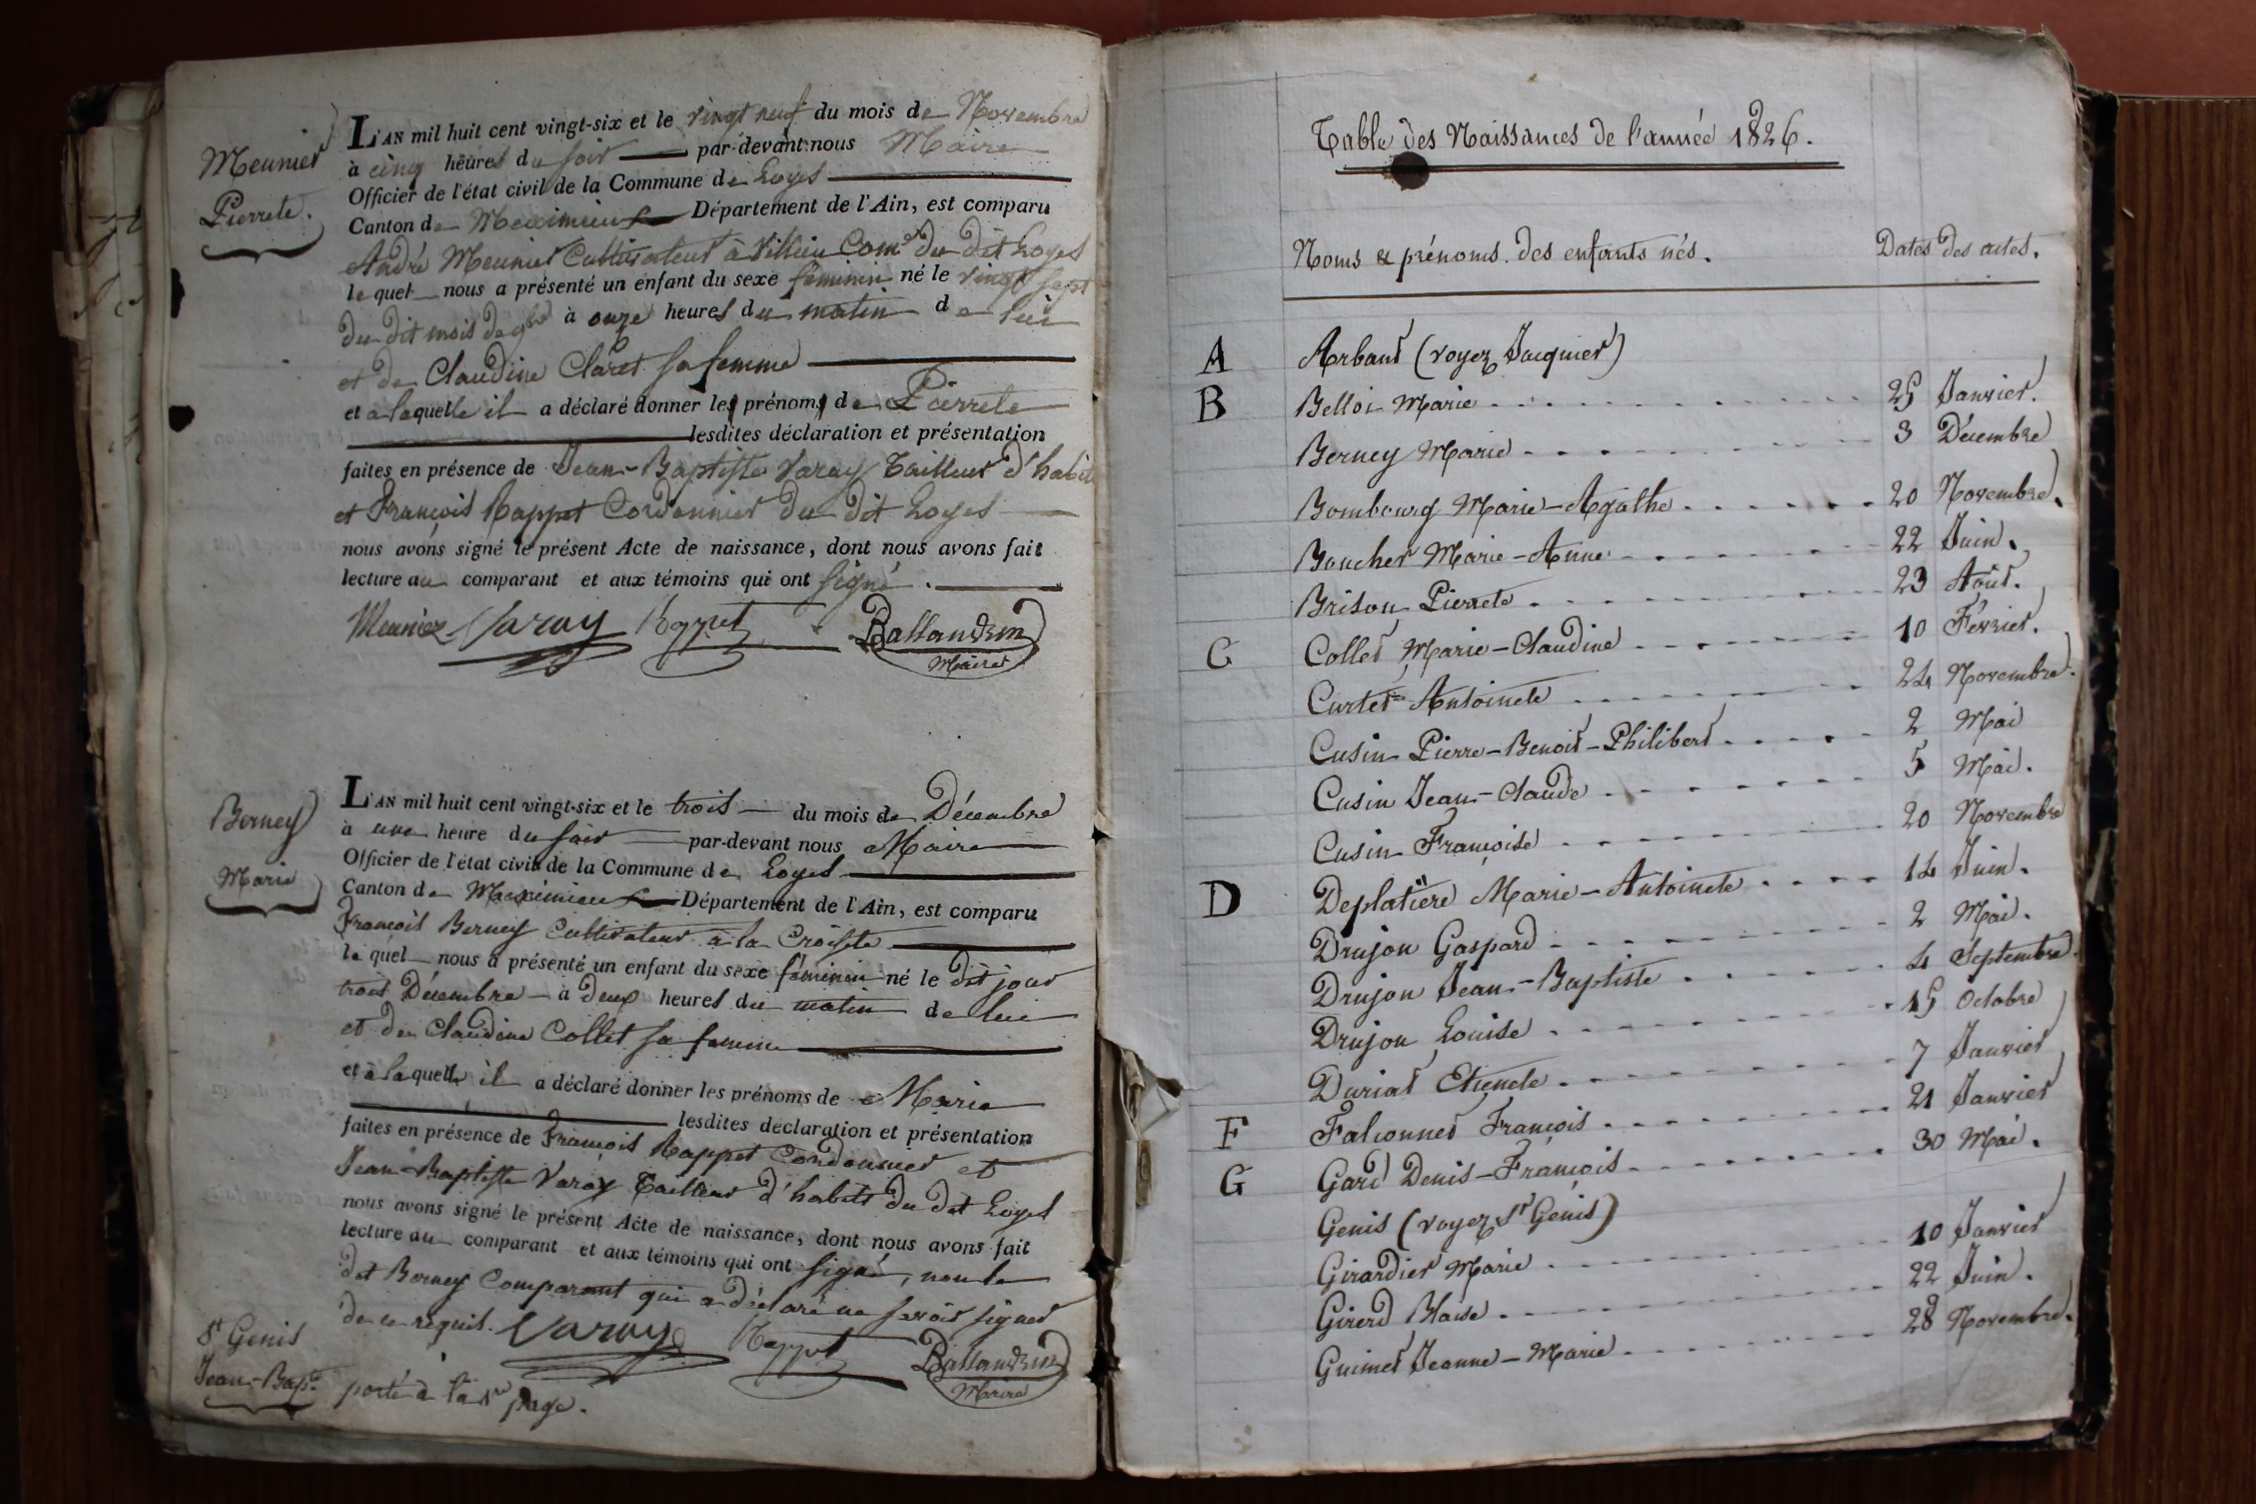 Meunier
Pierrete.
L'AN mil huit cent vingt-six et le vingt neuf du mois de Novembre
à cinq heures du soir par-devant nous Maire
Officier de l'état civil de la Commune de Loyes
Canton de Meximieux Département de l'Ain, est comparu
André Meunier Cultivateur à Villieu Com.e du dit Loyes
lequel nous a présenté un enfant du sexe féminin né le vingt sept
du dit mois de 9bre à onze heures du matin de lui
et de Claudine Claret sa femme
et à laquelle il a déclaré donner les prénoms de Pierrete
lesdites déclaration et présentation
faites en présence de Jean-Baptiste Varay Tailleur d'habits
et François Rappet Cordonnier du dit Loyes
nous avons signé le présent Acte de naissance, dont nous avons fait
lecture au comparant et aux témoins qui ont signé.
Meunier Varay Rappet Ballandrin
Maire
Berney
Marie
L'AN mil huit cent vingt-six et le trois du mois de Décembre
à une heure du soir par-devant nous Maire
Officier de l'état civil de la Commune de Loyes
Canton de Meximieux Département de l'Ain, est comparu
François Berney Cultivateur à la Croisete
lequel nous a présenté un enfant du sexe féminin né le dit jour
trois Décembre à deux heures du matin de lui
et de Claudine Collet sa femme
et à laquelle il a déclaré donner les prénoms de Marie
lesdites déclaration et présentation
faites en présence de François Rappet Cordonnier et
Jean-Baptiste Varay Tailleur d'habits du dit Loyes
nous avons signé le présent Acte de naissance, dont nous avons fait
lecture au comparant et aux témoins qui ont signé, non le
dit Berney Comparant qui a déclaré ne savoir signer
de ce requis. Varay Rappet Ballandrin
Maire
St Genis
Jean-Bapte. porté à la 1re page.
Table des Naissances de l'année 1826.
Noms & prénoms des enfants nés. Dates des actes.
A Arband (voyez Jacquier)
B Belloi Marie 25 Janvier.
Berney Marie 3 Décembre
Bombourg Marie-Agathe 20 Novembre.
Boucher Marie-Anne 22 Juin.
Brison Pierrete 23 Août.
C Collet Marie-Claudine 10 Février.
Curtet Antoinete 24 Novembre.
Cusin Pierre-Benoit-Philibert 2 Mai
Cusin Jean-Claude 5 Mai.
Cusin Françoise 20 Novembre
D Deplatière Marie-Antoinete 14 Juin.
Drujon Gaspard 2 Mai.
Drujon Jean-Baptiste 4 Septembre.
Drujon Louise 15 Octobre
Duriat Etienete 7 Janvier
F Falconnet François 21 Janvier
G Gard Denis-François 30 Mai.
Genis (voyez St Genis)
Girardier Marie 10 Janvier
Girerd Blaise 22 Juin.
Guimet Jeanne-Marie 28 Novembre.